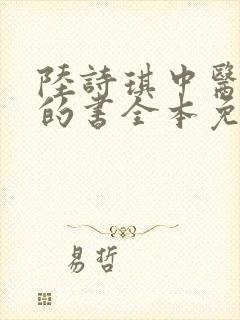 陸詩琪中醫
的書全本免
易哲